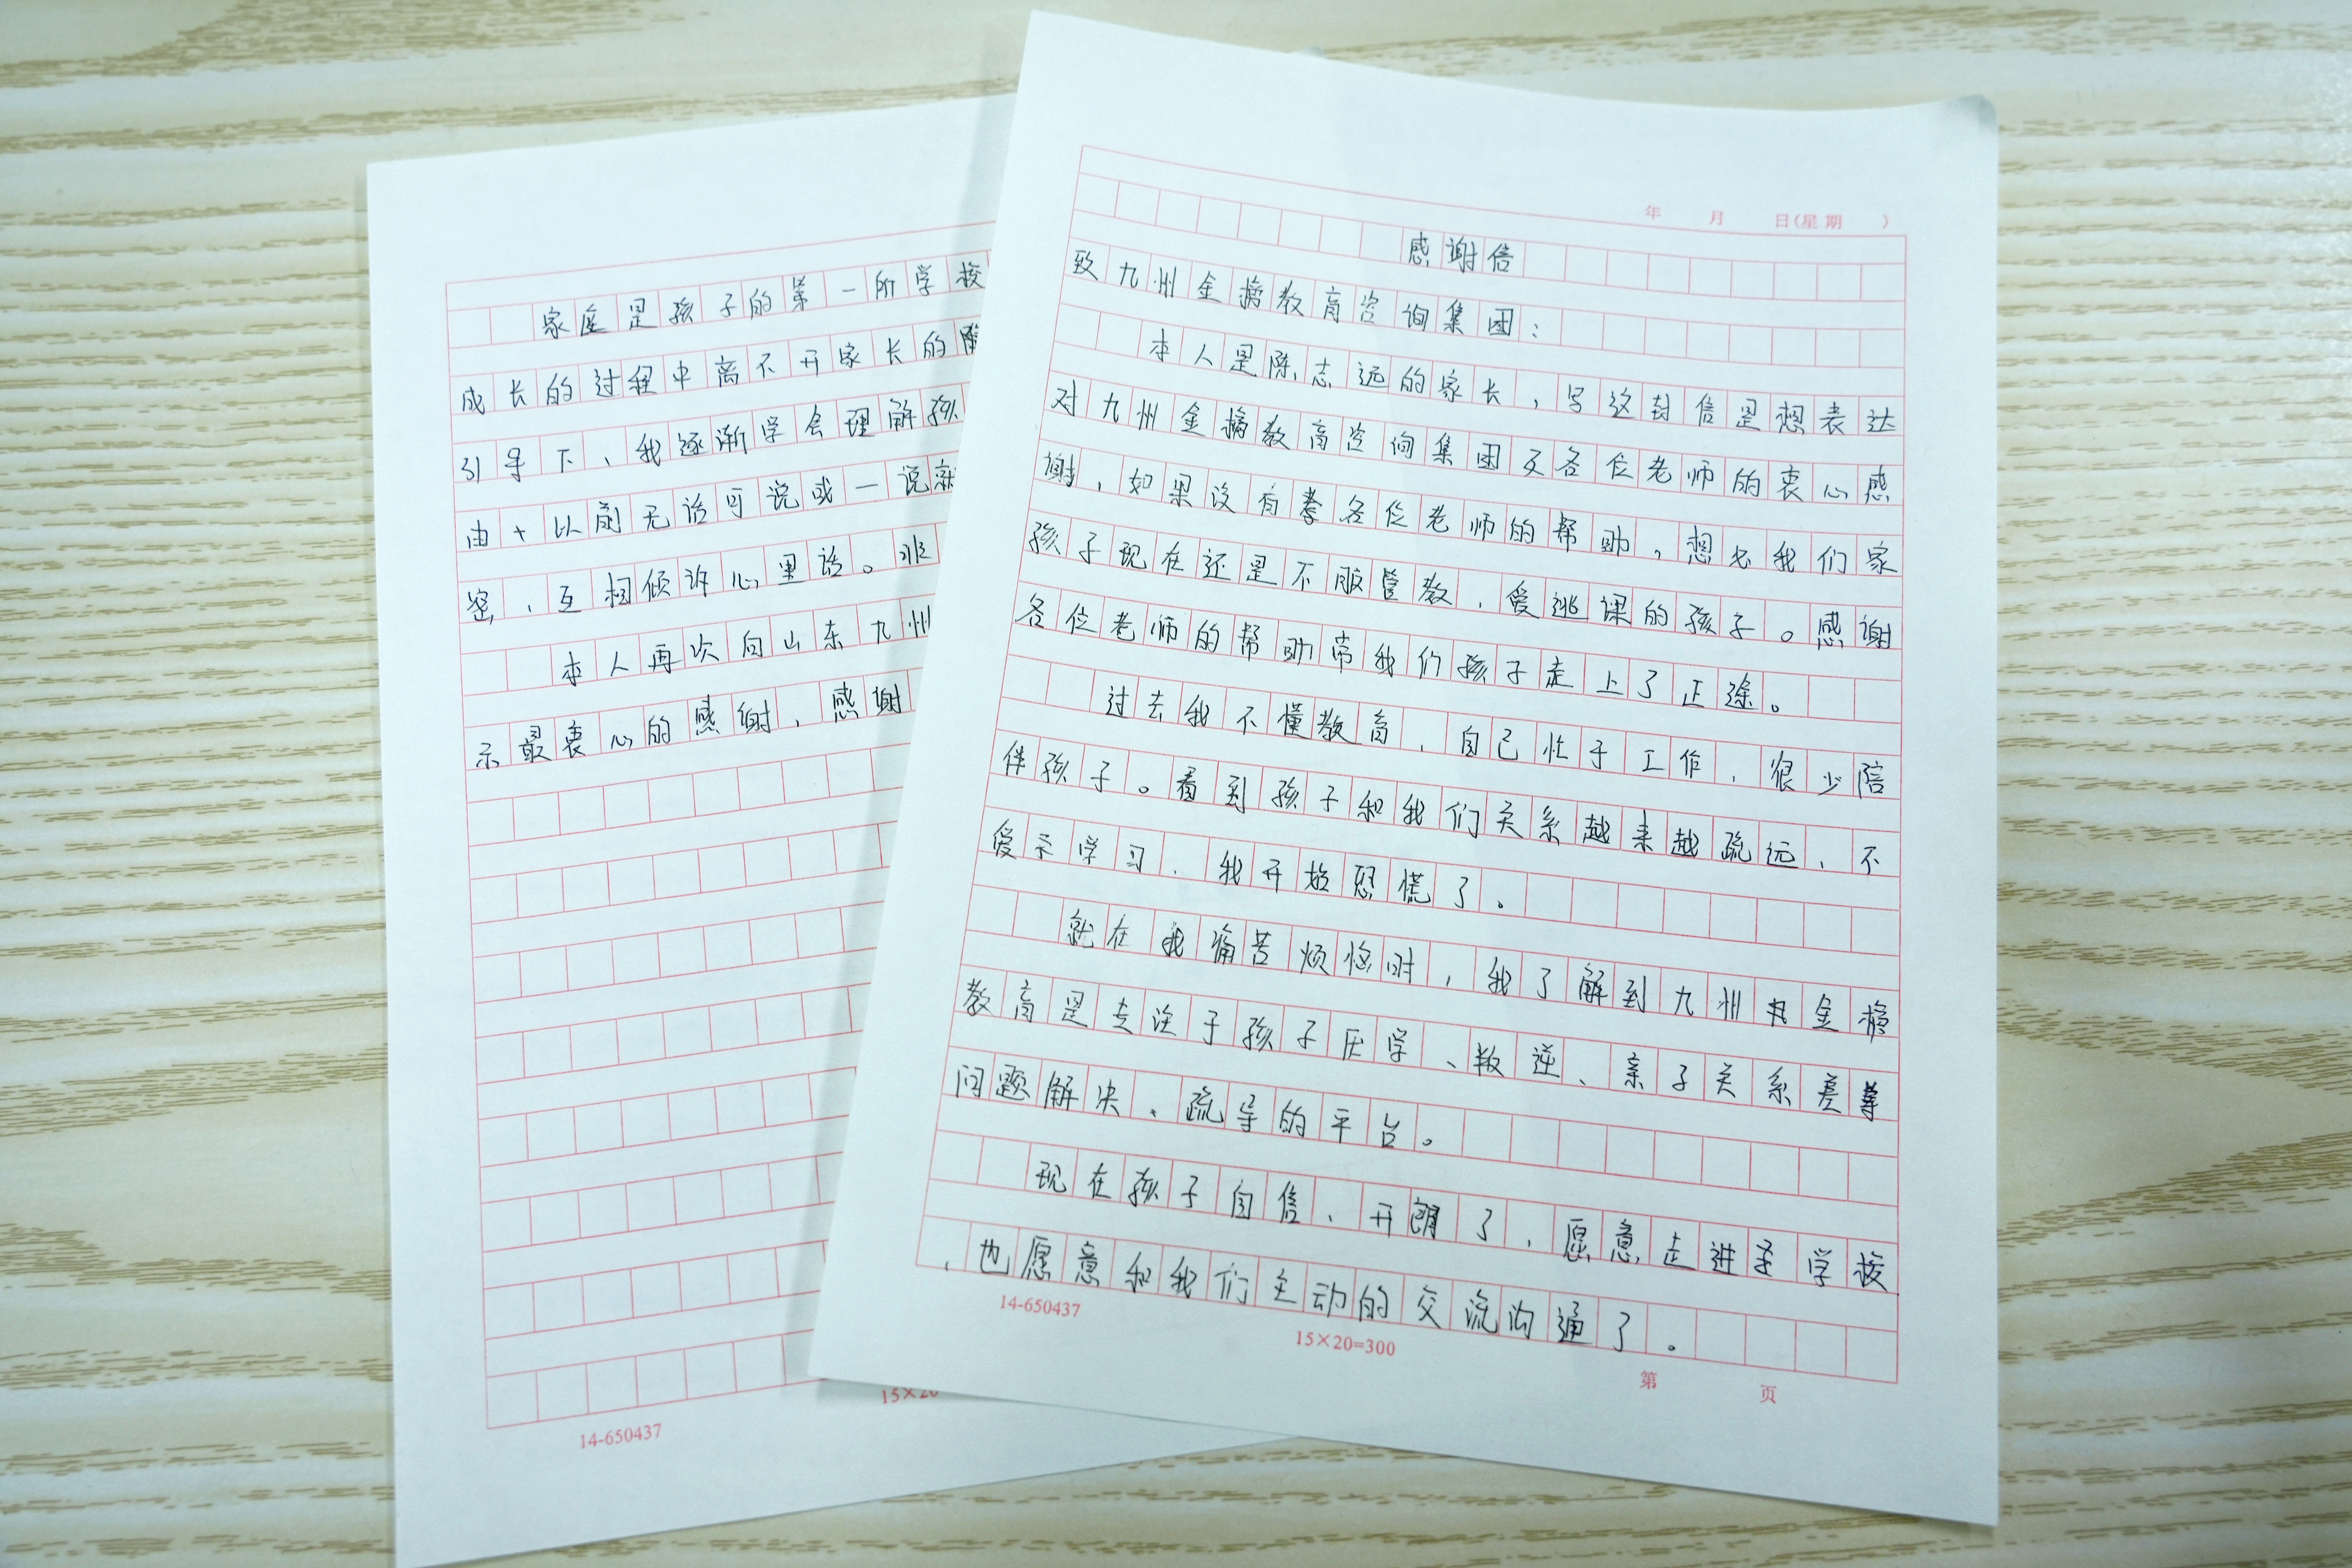 年 月 日(星期 )
感谢信
致九州金榜教育咨询集团：
本人是陈志远的家长，写这封信是想表达
对九州金榜教育咨询集团及各位老师的衷心感
谢，如果没有各位老师的帮助，想必我们家
孩子现在还是不服管教，爱逃课的孩子。感谢
各位老师的帮助带我们孩子走上了正途。
过去我不懂教育，自己忙于工作，很少陪
伴孩子。看到孩子和我们关系越来越疏远，不
爱学习，我开始恐慌了。
就在我痛苦烦恼时，我了解到九州金榜
教育是专注于孩子厌学、叛逆、亲子关系差等
问题解决、疏导的平台。
现在孩子自信、开朗了，愿意走进学校
，也愿意和我们主动的交流沟通了。
14-650437
15×20=300
第 页
家庭是孩子的第一所学校
成长的过程中离不开家长的
引导下、我逐渐学会理解孩
由十以前无话可说或一说就
密，互相倾诉心里话。
本人再次向山东九州
示最衷心的感谢，感谢
14-650437
15×20